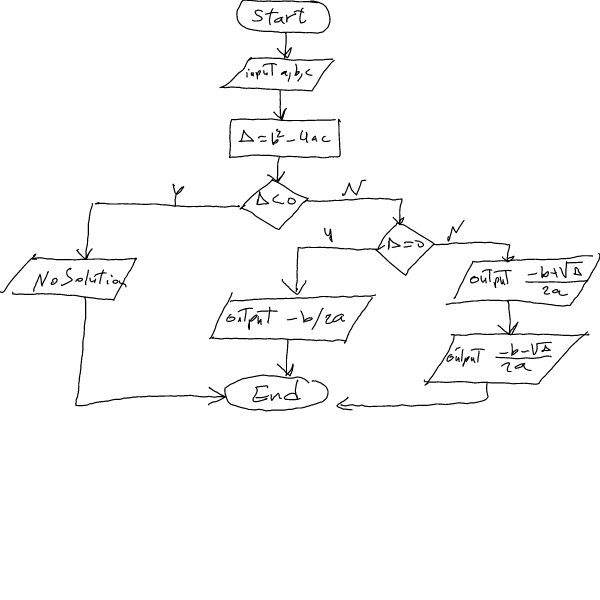 Start
input a,b,c
Δ=b²-4ac
Y
Δ<0
N
Y
Δ=0
N
No Solution
output -b/2a
output (-b+√Δ)/2a
output (-b-√Δ)/2a
End